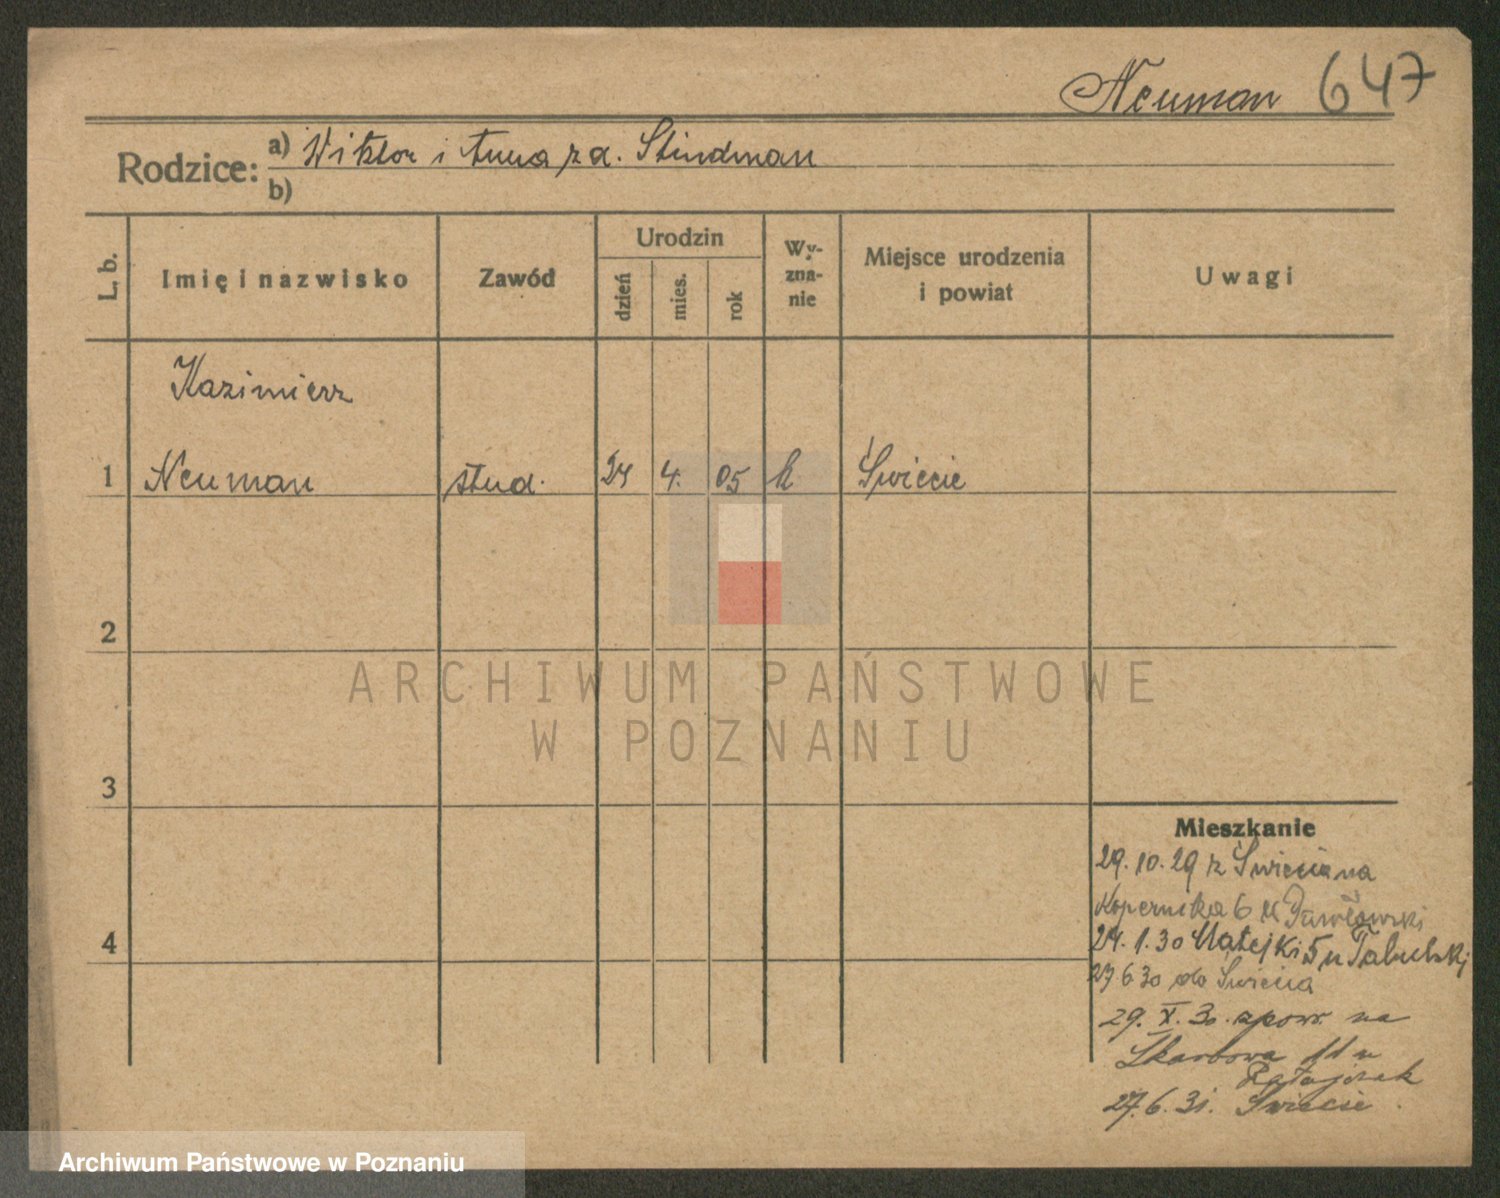 Neuman 647
Rodzice: a) Wiktor i Anna z d. Stindman
b)
L. b. Imię i nazwisko Zawód Urodzin dzień mies. rok Wy-zna-nie Miejsce urodzenia i powiat Uwagi
Kazimierz
1 Neuman stud. 24 4. 05 k Świecie
2
ARCHIWUM PAŃSTWOWE
W POZNANIU
3
Mieszkanie
29.10.29 z Świecia na
Kopernika 6 u Pawłowski
4
24.1.30 Matejki 5 u
27 6 30 do Świecia
29. X. 30. zpowr. na
Skarbowa 11 u
Ratajczak
27.6.31. Świecie
Archiwum Państwowe w Poznaniu